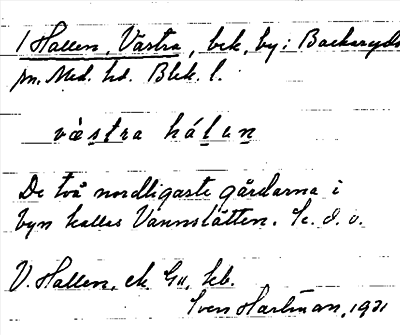 1 Hallen, Västra, bek, by i Backaryds
sn. Med. hd. Blek. l.
væstra hálen
De två nordligaste gårdarna i
byn kallas Vannslätten.
V. Hallen, ek. Gu, kb.
Sven Hartman, 1931